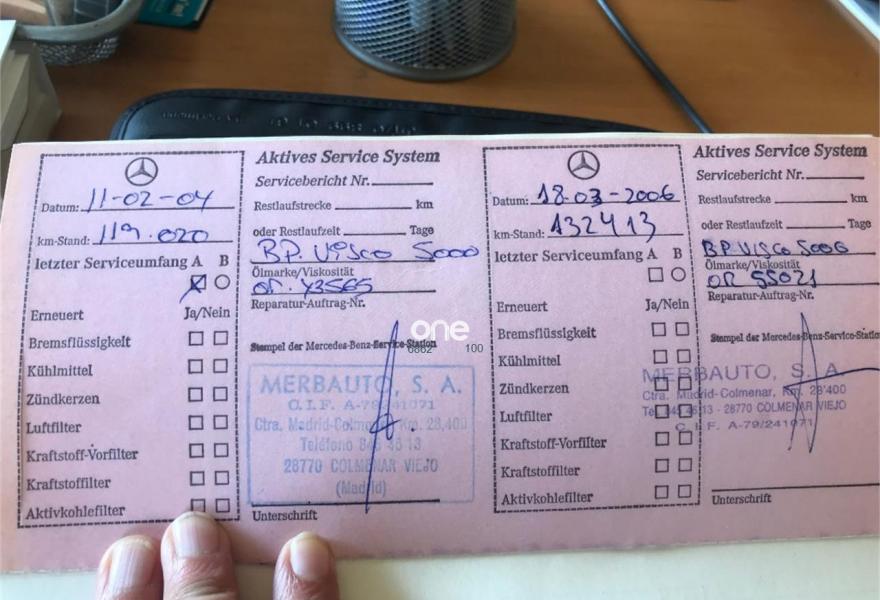 Aktives Service System
Datum: 11-02-04
Servicebericht Nr.
Restlaufstrecke km
km-Stand: 119.020
oder Restlaufzeit Tage
letzter Serviceumfang A B
BP. VISCO 5000
Ölmarke/Viskosität
OR. Y3565
Reparatur-Auftrag-Nr.
Erneuert Ja/Nein
Bremsflüssigkeit
Kühlmittel
Zündkerzen
Luftfilter
Kraftstoff-Vorfilter
Kraftstoffilter
Aktivkohlefilter
Stempel der Mercedes-Benz-Service-Station
MERBAUTO, S. A.
C.I.F. A-79/241071
Ctra. Madrid-Colmenar, Km. 28,400
Teléfono 845 46 13
28770 COLMENAR VIEJO
(Madrid)
Unterschrift
one
6862 100
Aktives Service System
Datum: 18-03-2006
Servicebericht Nr.
Restlaufstrecke km
km-Stand: 132413
oder Restlaufzeit Tage
letzter Serviceumfang A B
BP VISCO 5000
Ölmarke/Viskosität
OR 55021
Reparatur-Auftrag-Nr.
Erneuert Ja/Nein
Bremsflüssigkeit
Kühlmittel
Zündkerzen
Luftfilter
Kraftstoff-Vorfilter
Kraftstoffilter
Aktivkohlefilter
Stempel der Mercedes-Benz-Service-Station
MERBAUTO, S. A.
Ctra. Madrid-Colmenar, Km. 28'400
Tel. 845 46 13 - 28770 COLMENAR VIEJO
C. I. F. A-79/241071
Unterschrift